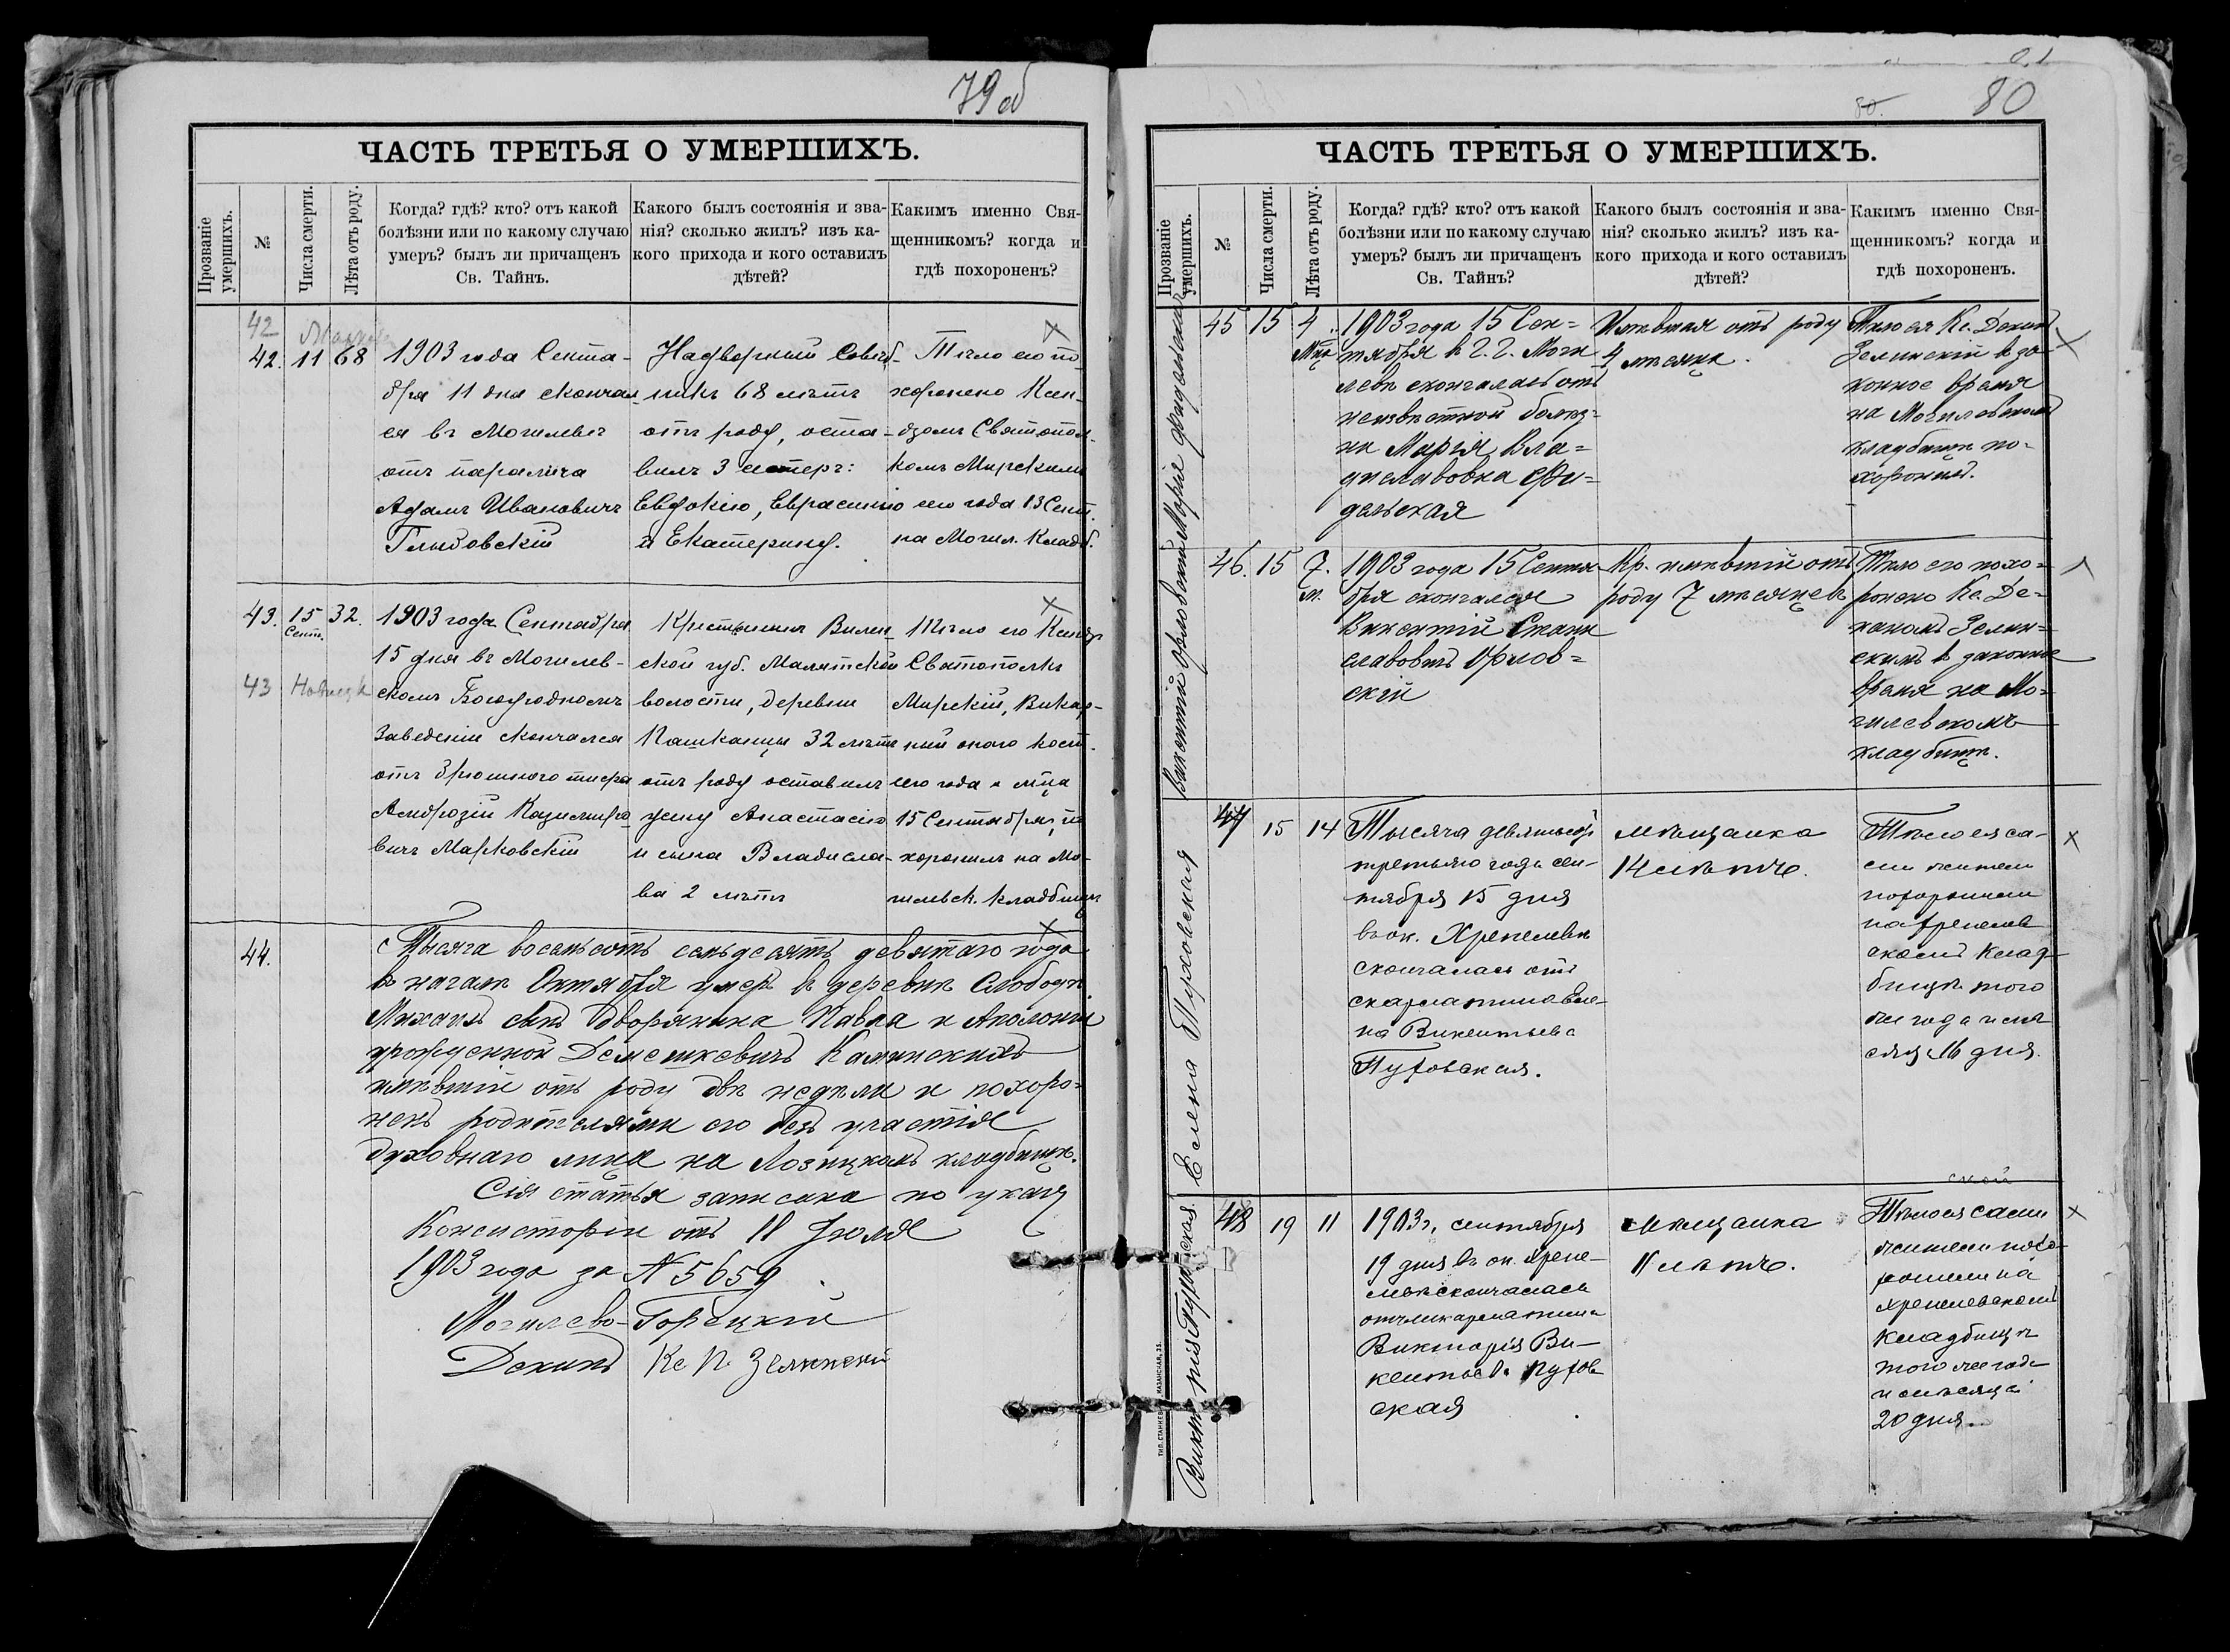 79 об
ЧАСТЬ ТРЕТЬЯ О УМЕРШИХЪ.
Прозваніе умершихъ.
№
Числа смерти.
Лѣта отъ роду.
Когда? гдѣ? кто? отъ какой
болѣзни или по какому случаю
умеръ? былъ ли причащенъ
Св. Тайнъ.
Какого былъ состоянія и зва-
нія? сколько жилъ? изъ ка-
кого прихода и кого оставилъ
дѣтей?
Какимъ именно Свя-
щенникомъ? когда и
гдѣ похороненъ?
42
42. 11 68
1903 года Сентя-
бря 11 дня скончал
ся въ Могилевѣ
отъ паралича
Адамъ Ивановичъ
Надворный Совѣт-
никъ 68 лѣтъ
отъ роду, оста-
вилъ 3
Евдокію,
и Екатерину.
Тѣло его по
хоронено Ксен-
дзомъ Святопол-
комъ Мирскимъ
его года 13 Сент.
на Могил. Кладб.
43. 15 Сент. 32.
43
1903 года Сентября
15 дня въ Могилев-
скомъ Богоугодномъ
Заведеніи скончался
отъ брюшного тифа
Амброзій Казимиро
вичъ Марковскій
Крестьянинъ Вилен
ской губ. Малятской
волости, деревни
Пашканцы 32 лѣтъ
отъ роду оставилъ
жену Анастасію
и сына Владисла-
ва 2 лѣтъ
Тѣло его Ксендз
Святополкъ
Мирскій, Викар-
ный оного кост.
его года и мца
15 Сентября, по
хоронилъ на Мо-
гилевск. кладбищѣ
44.
Тысяча восемьсотъ семьдесятъ девятаго года
въ началѣ Октября умеръ въ деревнѣ Слободѣ
Михаилъ сынъ Дворянина Павла и Аполоніи
урожденной Демешкевичъ Каминскихъ
имѣвшій отъ роду двѣ недѣли и похоро-
ненъ родителями его безъ участія
духовнаго лица на Лозицкомъ кладбищѣ.
Сія статья записана по указу
Консисторіи отъ 11 Іюля
1903 года за № 5659
Могилево-Горецкій
Деканъ Кс П. Зелинскій
80.
80
ЧАСТЬ ТРЕТЬЯ О УМЕРШИХЪ.
Прозваніе умершихъ.
№
Числа смерти.
Лѣта отъ роду.
Когда? гдѣ? кто? отъ какой
болѣзни или по какому случаю
умеръ? былъ ли причащенъ
Св. Тайнъ?
Какого былъ состоянія и зва-
нія? сколько жилъ? изъ ка-
кого прихода и кого оставилъ
дѣтей?
Какимъ именно Свя-
щенникомъ? когда и
гдѣ похороненъ.
45 15 4 Мца
1903 года 15 Сен=
тября въ Г. Г. Моги
левѣ скончалась отъ
неизвѣстной болѣз=
ни Марія Вла=
диславовна Фи=
дельская
Имѣвшая отъ роду
4 мѣсяца.
Тѣло ея Кс. Деканъ
Зелинскій въ за-
конное время
на Могилевскомъ
кладбищѣ по-
хоронилъ.
Викентій Орловскій
46. 15 7. м.
1903 года 15 Сентя-
бря скончался
Викентій Стани
славовичъ Орлов=
скій
Кр. имѣвшій отъ
роду 7 мѣсяцевъ
Тѣло его похо=
ронено Кс. Де=
каномъ Зелин=
скимъ въ законное
время на Мо=
гилевскомъ
кладбищѣ.
Елена Пуховская
47 15 14
Тысяча девятьсотъ
третьяго года сен-
тября 15 дня
въ ок. Хрепелевѣ
скончалась отъ
скарлатины Еле-
на Викентьева
Пуховская.
мѣщанка
14 лѣтъ.
Тѣло ея са-
ми жители
похоронили
на Хрепелев
скомъ клад-
бищѣ того
же года и мѣ
сяца 16 дня.
ской
48 19 11
1903 г. сентября
19 дня въ ок. Хрепе-
левѣ скончалась
отъ скарлатины
Викторія Ви-
кентьева Пухов
ская
мѣщанка
11 лѣтъ.
Тѣло ея сами
жители похо-
ронили на
Хрепелевскомъ
кладбищѣ
того же года
и мѣсяца
20 дня.